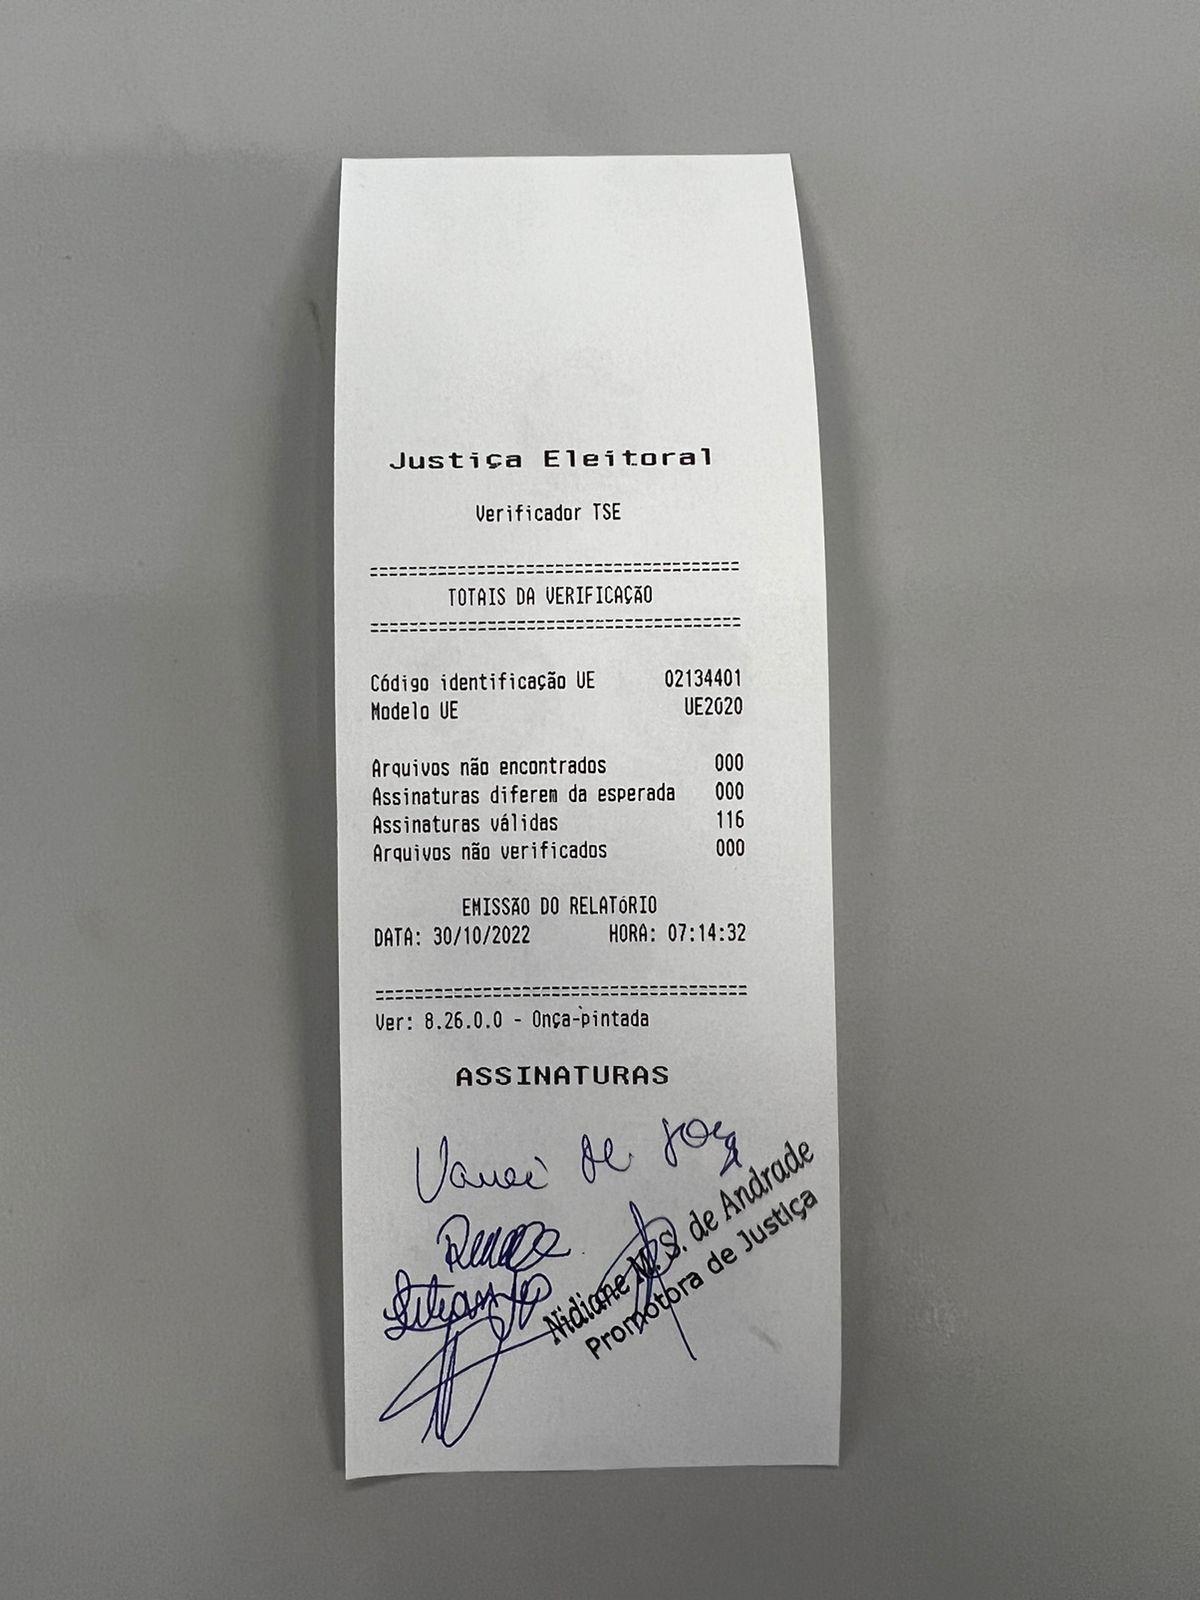 Justiça Eleitoral
Verificador TSE
======================================
TOTAIS DA VERIFICAÇÃO
======================================
Código identificação UE 02134401
Modelo UE UE2020
Arquivos não encontrados 000
Assinaturas diferem da esperada 000
Assinaturas válidas 116
Arquivos não verificados 000
EMISSÃO DO RELATÓRIO
DATA: 30/10/2022 HORA: 07:14:32
======================================
Ver: 8.26.0.0 - Onça-pintada
ASSINATURAS
de
Nidiane M. S. de Andrade
Promotora de Justiça